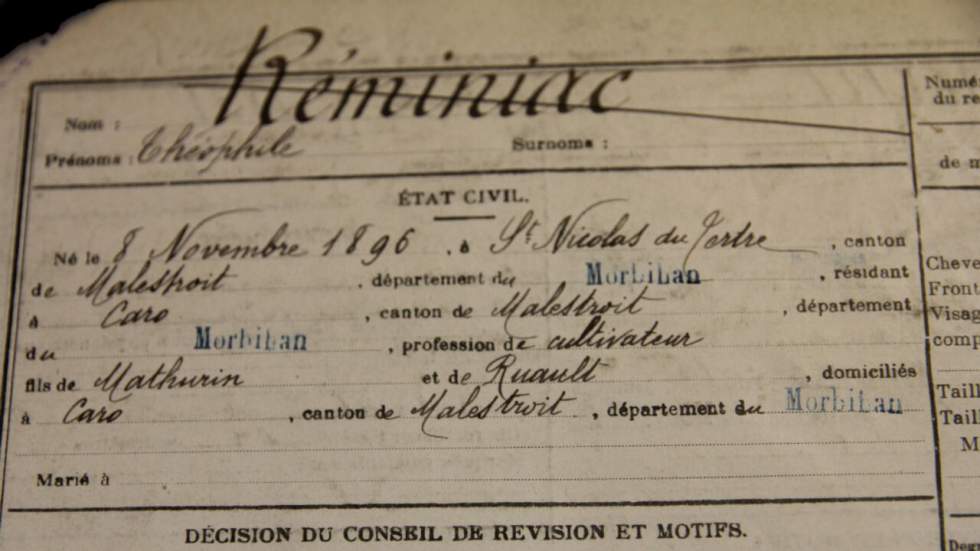 Réminiac
Nom :
Numé
du re
Prénoms : Théophile Surnoms :
de m
ÉTAT CIVIL.
Né le 8 Novembre 1896 , à St Nicolas du Tertre , canton
de Malestroit , département du Morbihan , résidant
à Caro , canton de Malestroit , département
du Morbihan , profession de cultivateur
fils de Mathurin et de Ruault , domiciliés
à Caro , canton de Malestroit , département du Morbihan
Marié à
DÉCISION DU CONSEIL DE REVISION ET MOTIFS.
Cheve
Front
Visag
comp
Taill
Taill
M